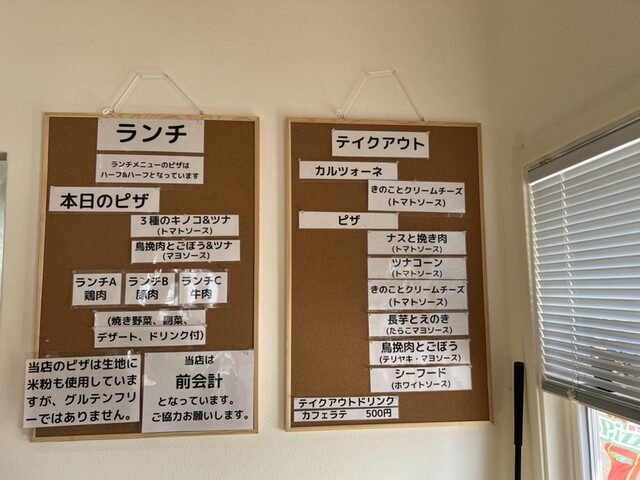 ランチ
ランチメニューのピザは
ハーフ&ハーフとなっています
本日のピザ
３種のキノコ&ツナ
(トマトソース)
鳥挽肉とごぼう&ツナ
(マヨソース)
ランチA
鶏肉
ランチB
豚肉
ランチC
牛肉
(焼き野菜、副菜、
デザート、ドリンク付)
当店のピザは生地に
米粉も使用していま
すが、グルテンフリ
ーではありません。
当店は
前会計
となっています。
ご協力お願いします。
テイクアウト
カルツォーネ
きのことクリームチーズ
(トマトソース)
ピザ
ナスと挽き肉
(トマトソース)
ツナコーン
(トマトソース)
きのことクリームチーズ
(トマトソース)
長芋とえのき
(たらこマヨソース)
鳥挽肉とごぼう
(テリヤキ・マヨソース)
シーフード
(ホワイトソース)
テイクアウトドリンク
カフェラテ 500円